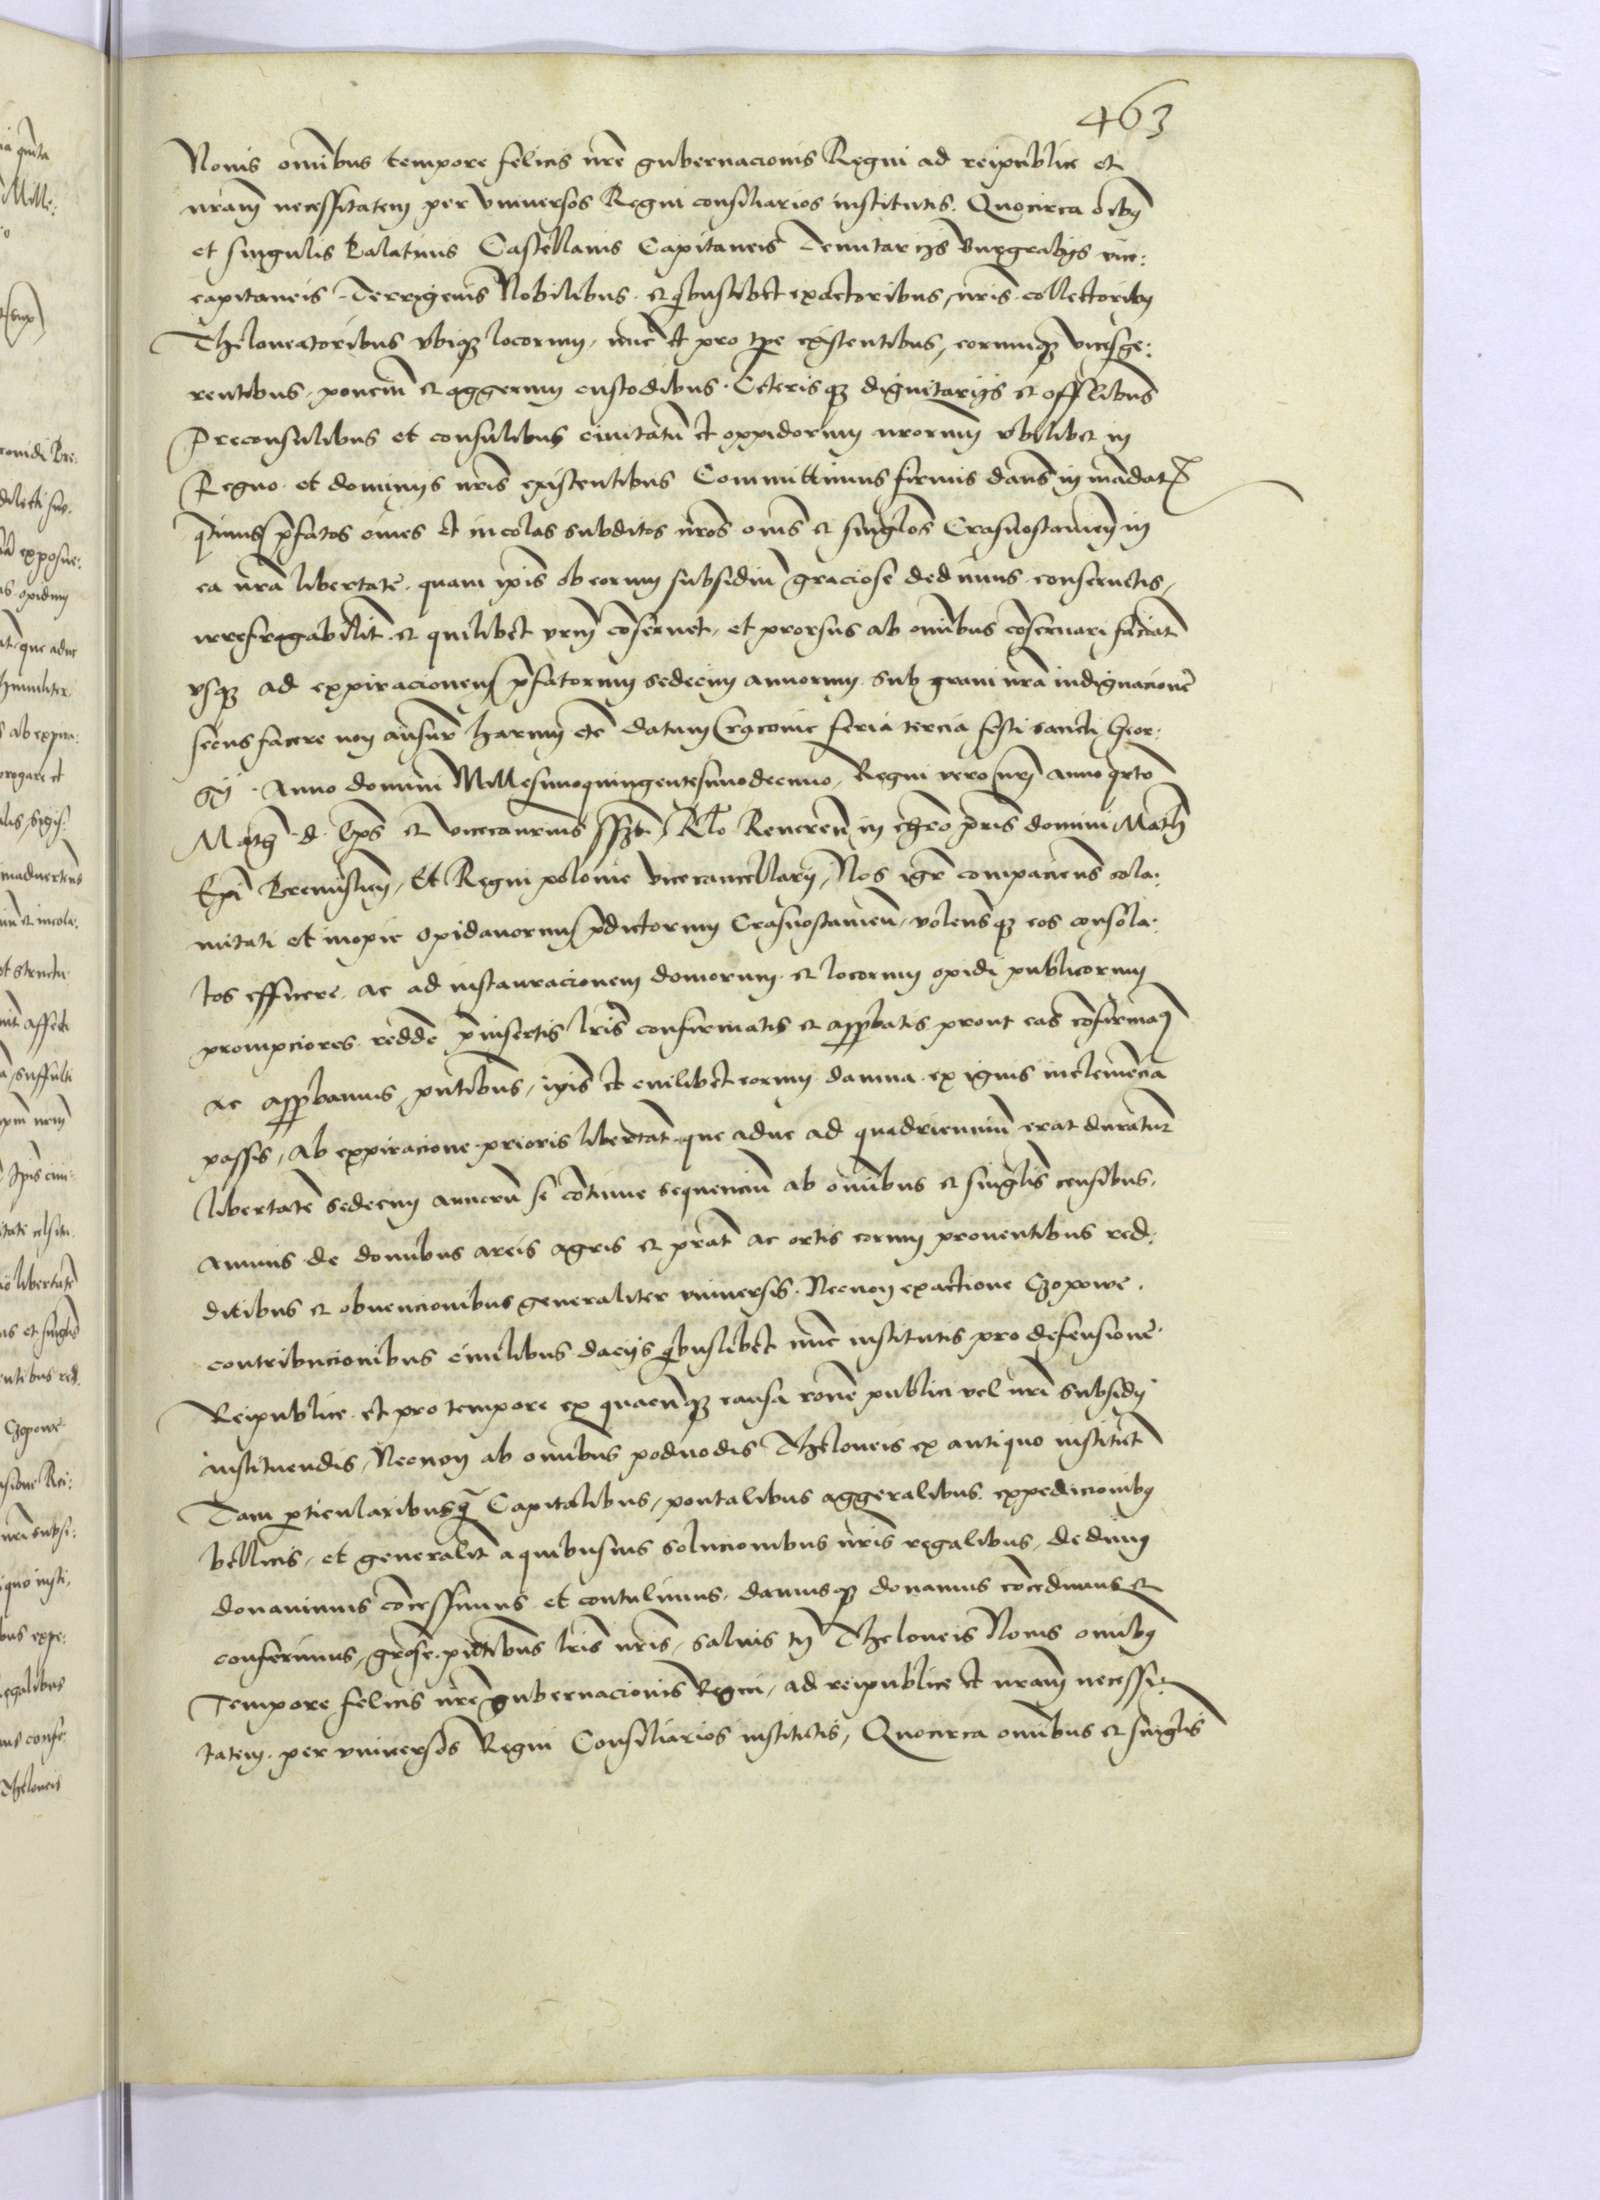 463
Nouis omibus tempore felicis nre gubernacionis Regni ad reipublice et
nram necessitatem per vniuersos Regni consiliarios institutis. Quocirca oibus
et singulis Palatinis Castellanis Capitaneis Tenutarijs Burgrabijs vice:
capitaneis Terrigenis Nobilibus et quibuslibet exactoribus, nris collectoribus
Theloneatoribus vbique locorum, nunc et pro tpe existentibus, eorumque vicesge:
rentibus, poncium et aggerum custodibus. Ceterisque dignitarijs et officialibus
Preconsulibus et consulibus ciuitatum et oppidorum nrorum vbilibet in
Regno et dominijs nris existentibus Committimus firmis dans in mandatis
quatinus prefatos ciues et incolas subditos nros omes et singlos Crasnostauien in
ea nra libertate quam ipis ob eorum subsidium graciose dedimus conseruetis,
irrefragabilit et quilibet vrm conseruet, et prorsus ab omibus conseruari faciat
vsque ad expiracionem prefatorum sedecim annorum sub graui nra indignacione
secus facere non ausur harum etc datum Cracouie feria tercia festi sancti Geor:
gij Anno domini Millesimoquingentesimodecimo, Regni vero nri anno qrto
Math d Eps et vicecancrius sszt Rlo Reueren in chro pris domini Math
Epi Premislien, Et Regni polonie vicecancellarij, Nos igr compaciens cala:
mitati et inopie opidanorum predictorum Crasnostauien, volensque eos consola:
tos efficere, ac ad instauracionem domorum et locorum opidi publicorum
prompciores redde preinsertis lris confirmatis et approbatis prout eas confirmamus
ac approbamus, pntibus, ipis et cuilibet eorum damna ex ignis inclemencia
passis, Ab expiracione prioris libertat que aduc ad quadriennium erat duratur
libertatem sedecim annorum se continue sequencium ab omibus et singlis censibus,
annuis de domibus areis agris et prat ac ortis eorum prouentibus red:
ditibus et obuencionibus generaliter vniuersis. Necnon exactione Czopowe.
contribucionibus ciuilibus dacijs quibuslibet nunc institutis pro defensione
Reipublice et pro tempore ex quacunque causa racione publici vel nri subsidij
instituendis, Necnon ab omibus podwodis Theloneis ex antiquo institut
Tam particularibus quam Capitalibus, pontalibus aggeralibus expedicionibus
bellicis, et generalit a quibusuis solucionibus nris regalibus, dedimus
donauimus concessimus et contulimus, damusque donamus concedimus et
conferimus, grose pntibus lris nris, saluis tn Theloneis Nouis omibus
Tempore felicis nre gubernacionis Regni, ad reipublice et nram necessi-
tatem per vniuersos Regni Consiliarios institutis, Quocirca omibus et singlis